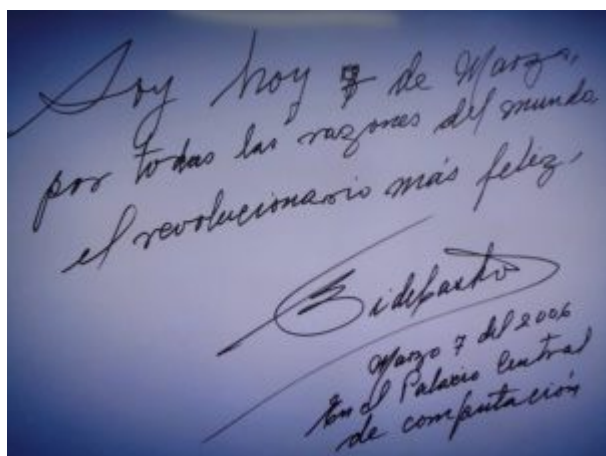 Soy hoy 7 de Marzo,
por todas las razones del mundo
el revolucionario más feliz,
Fidel Castro
Marzo 7 del 2006
En el Palacio Central
de computación